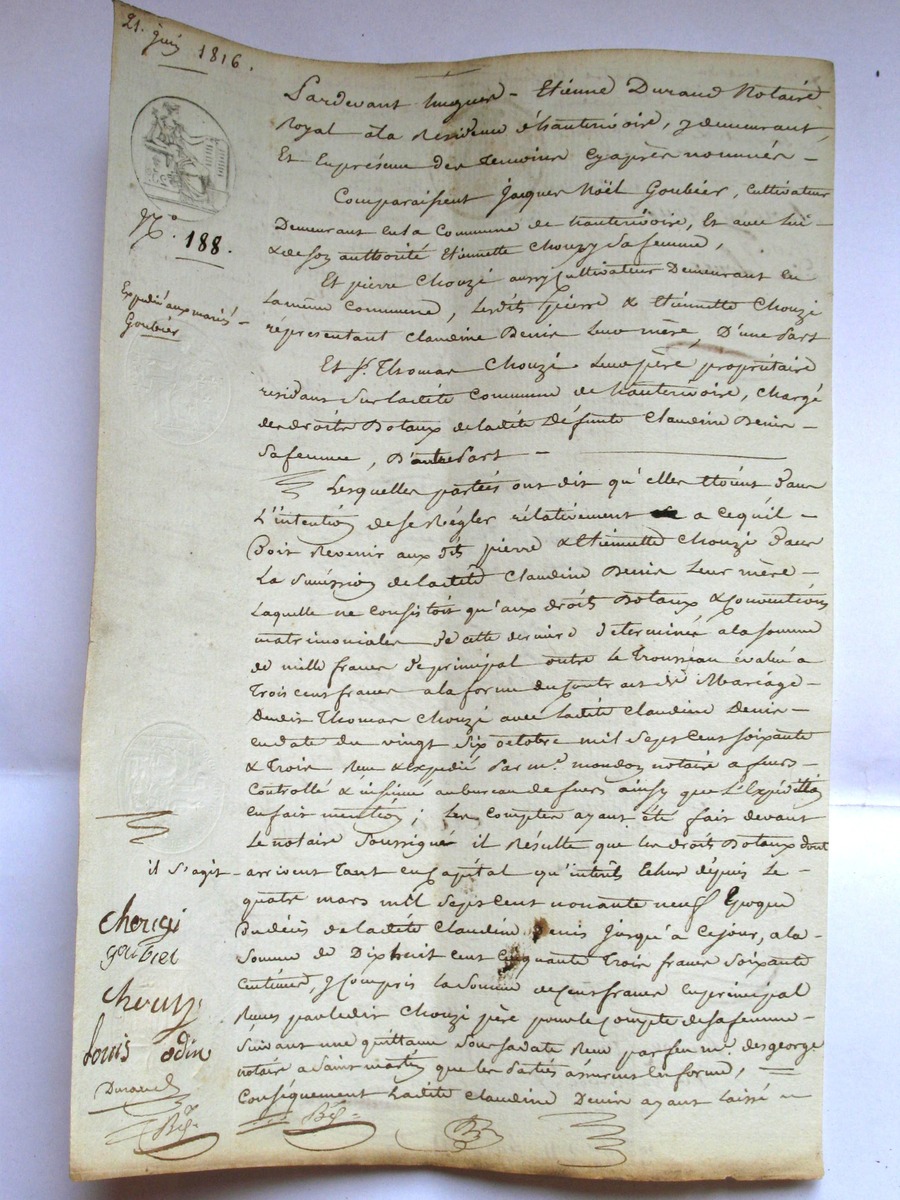 21. juin 1816.
N.o 188.
Expédié aux mariés
Goubier
Pardevant hugues - Etienne Durand Notaire
Royal à la Résidence d'hauterivoire, y demeurant,
Et En présence des Temoins Cy après nommés -
Comparaissent Jacques Noël Goubier, Cultivateur
Demeurant en la Commune de hauterivoire, Et avec Lui
& de son authorité Etiennette Chouzy sa femme,
Et pierre Chouzé aussy Cultivateur Demeurant en
La même Commune, Lesdits pierre & Etiennette Chouzé
réprésentant Claudine Denis Leur mère, D'une Part
Et Sr. Thomas Chouzé Leur père propriétaire
résidant Sur ladite Commune de hauterivoire, Chargé
des droits Dotaux de ladite Défunte Claudine Denis -
Sa femme, D'autre Part -
Lesquelles parties ont dit qu'elles Etoient dans
L'intention de se Régler rélativement a ce qu'il -
Doit Revenir aux dits pierre & Etiennette Chouzé dans
La succession de ladite Claudine Denis Leur mère -
Laquelle ne consistoit qu'aux droits Dotaux & Conventions
matrimoniales de cette dernière déterminés a la somme
de mille francs de principal outre le Trousseau évalué a
Trois cens francs a la forme du Contract de Mariage -
dudit Thomas Chouzé avec ladite Claudine Denis -
en date du vingt Six octobre mil Sept Cens Soixante
& Trois Reçu & expédié Par me. mondon notaire a feurs
Controllé & insinué au bureau de feurs ainsy que L'Expédition
en fait mention; Les Comptes ayant été fait devant
Le notaire Soussigné il Résulte que les droits Dotaux dont
il s'agit - arrivent Tant en Capital qu'intérêts Echus dépuis Le -
quatre mars mil Sept Cent nonante neuf Epoque
Du décès de ladite Claudine Denis Jusqu'à ce jour, a la
Somme de Dixhuit cent Cinquante Trois francs Soixante
Centimes, y Compris la Somme de Cens francs en principal
Reçus par ledit Chouzé père pour le Compte de sa femme -
Suivant une quittance Sous sa date Reçu par feu me. desgeorge
notaire a Saint martin que les Parties assurent En forme, =
Conséquement Ladite Claudine Denis ayant laissé
chouzy
goubier
Chouzy
Louis odin
Durand